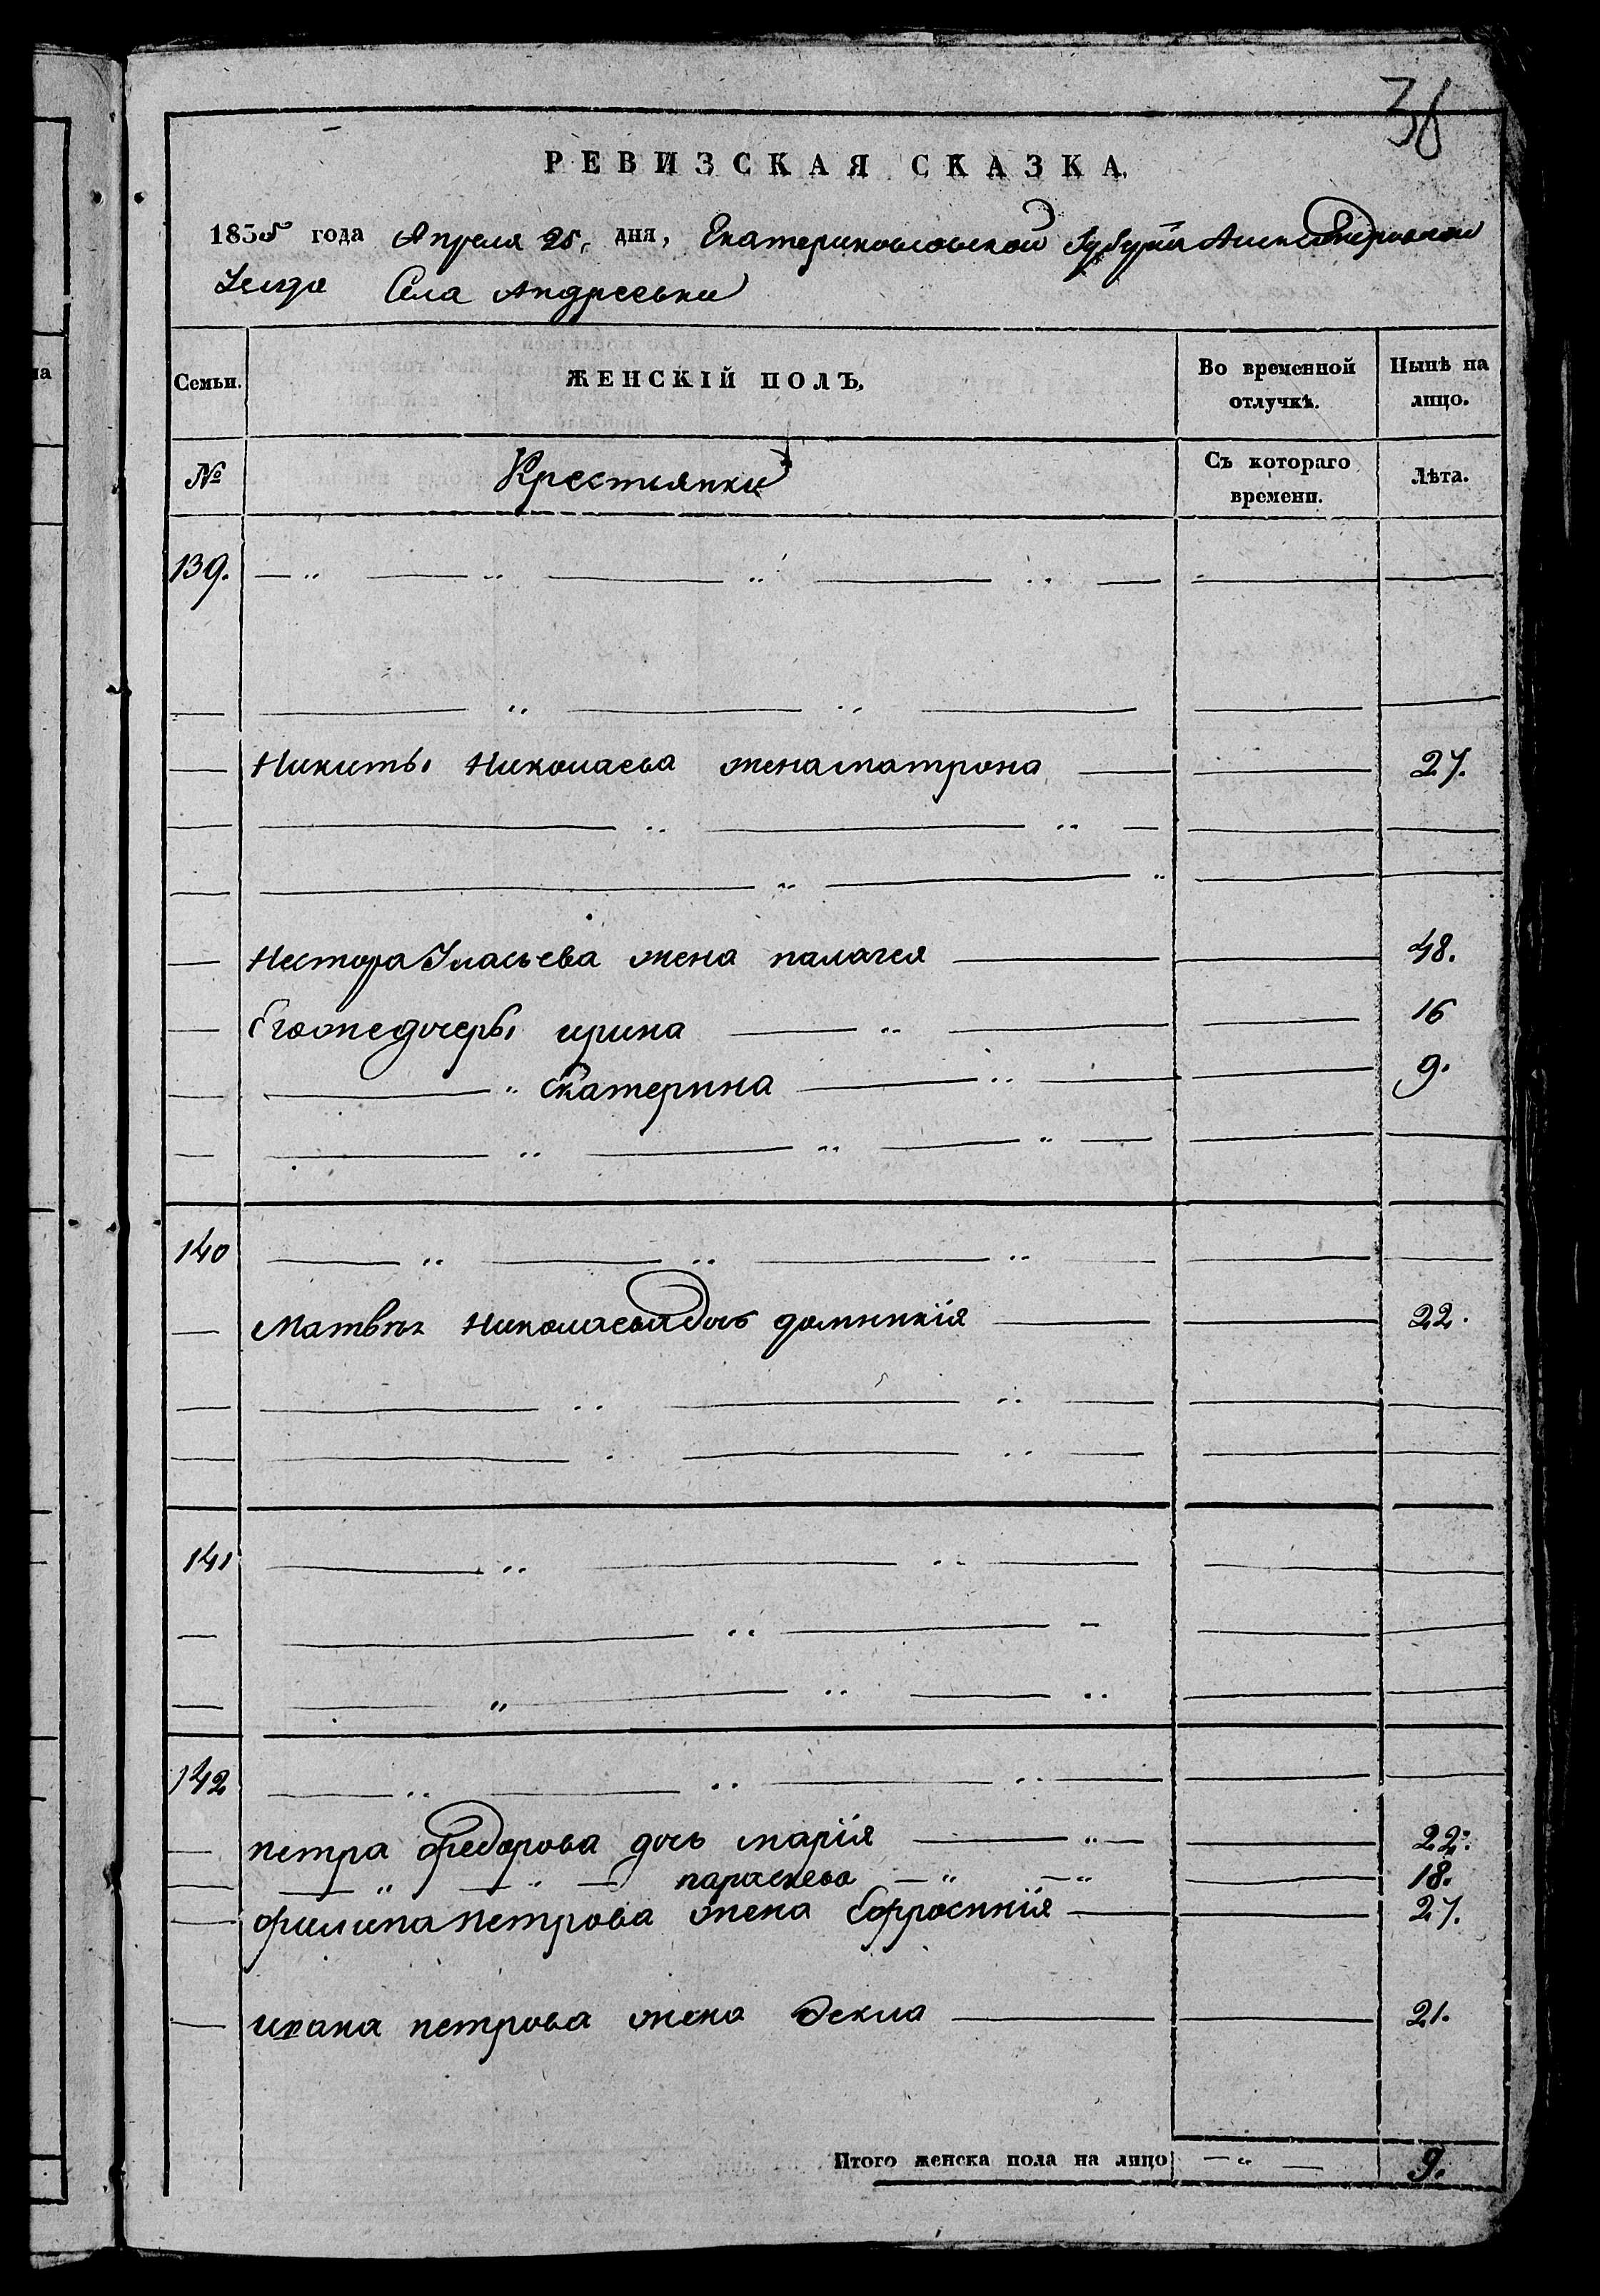 38
РЕВИЗСКАЯ СКАЗКА.
1835 года Апреля 25, дня, Екатеринославской Губерніи Александровскаго
Уезда Села Андреевки
на
Семьи. ЖЕНСКІЙ ПОЛЪ. Во временной отлучкѣ. Нынѣ на лицо.
№ Крестьянки Съ котораго времени. Лѣта.
139.
Никиты Николаева жена матрона 27.
Нестора Уласьева жена палагея 48.
Егоже дочеры ирина 16
Екатерина 9.
140
Матвея Николаева дочь домникія 22.
141
142
петра федорова дочь марія 22.
параскева 18.
филипа петрова жена Ефросинія 27.
ивана петрова жена Фекла 21.
Итого женска пола на лицо 9.